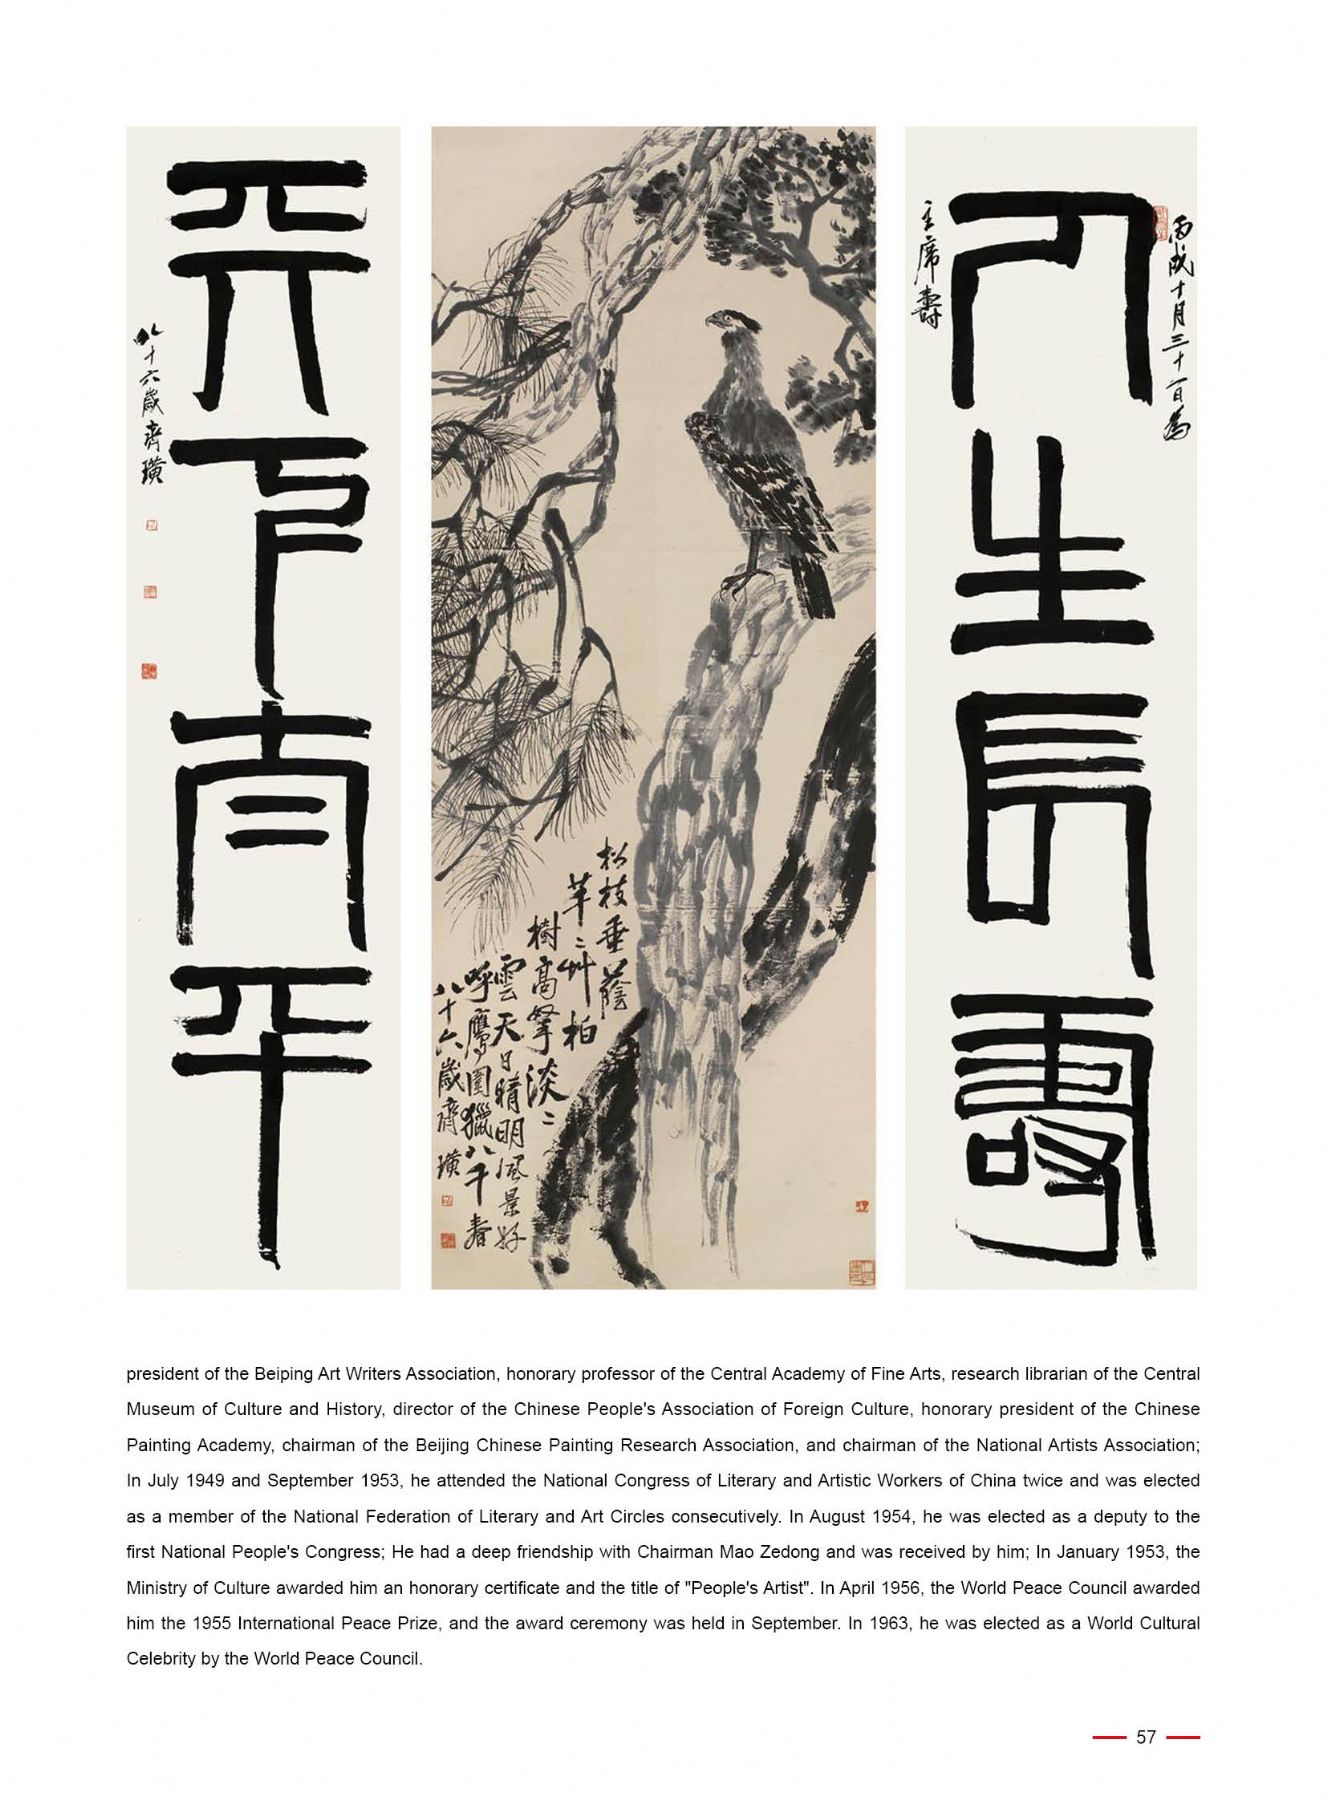 人生長壽
丙戌十月三十一日為
主席壽
松枝垂蔭
芊〻艸柏
樹高擎淡〻
雲天日晴明風景好
呼鷹圍獵八千春
八十六歲齊璜
天下太平
八十六歲齊璜
president of the Beiping Art Writers Association, honorary professor of the Central Academy of Fine Arts, research librarian of the Central
Museum of Culture and History, director of the Chinese People's Association of Foreign Culture, honorary president of the Chinese
Painting Academy, chairman of the Beijing Chinese Painting Research Association, and chairman of the National Artists Association;
In July 1949 and September 1953, he attended the National Congress of Literary and Artistic Workers of China twice and was elected
as a member of the National Federation of Literary and Art Circles consecutively. In August 1954, he was elected as a deputy to the
first National People's Congress; He had a deep friendship with Chairman Mao Zedong and was received by him; In January 1953, the
Ministry of Culture awarded him an honorary certificate and the title of "People's Artist". In April 1956, the World Peace Council awarded
him the 1955 International Peace Prize, and the award ceremony was held in September. In 1963, he was elected as a World Cultural
Celebrity by the World Peace Council.
57